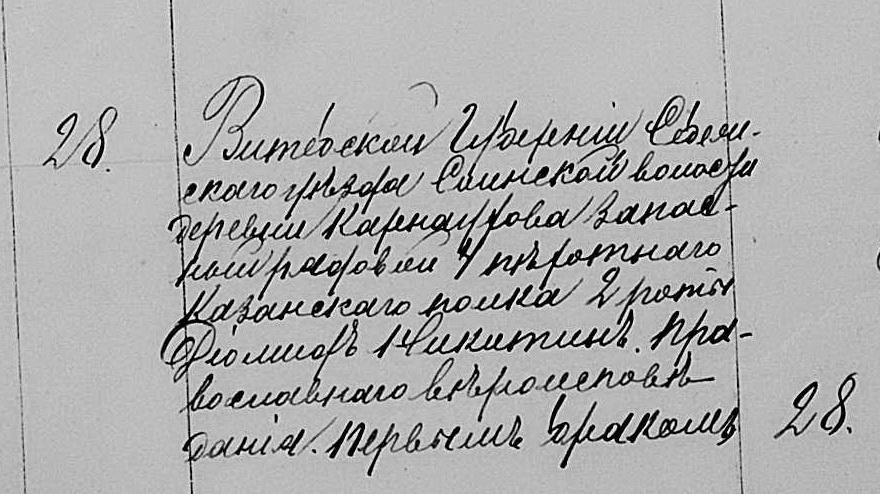 28. Витебской Губерніи Себежи-
скаго уѣзда Синской волости
деревни Карнаухова Запас-
ный рядовой 4 пѣхотнаго
Казанскаго полка 2 роты
Діомидъ Никитинъ. Пра-
вославнаго вѣроисповѣ-
данія. Первымъ бракомъ 28.